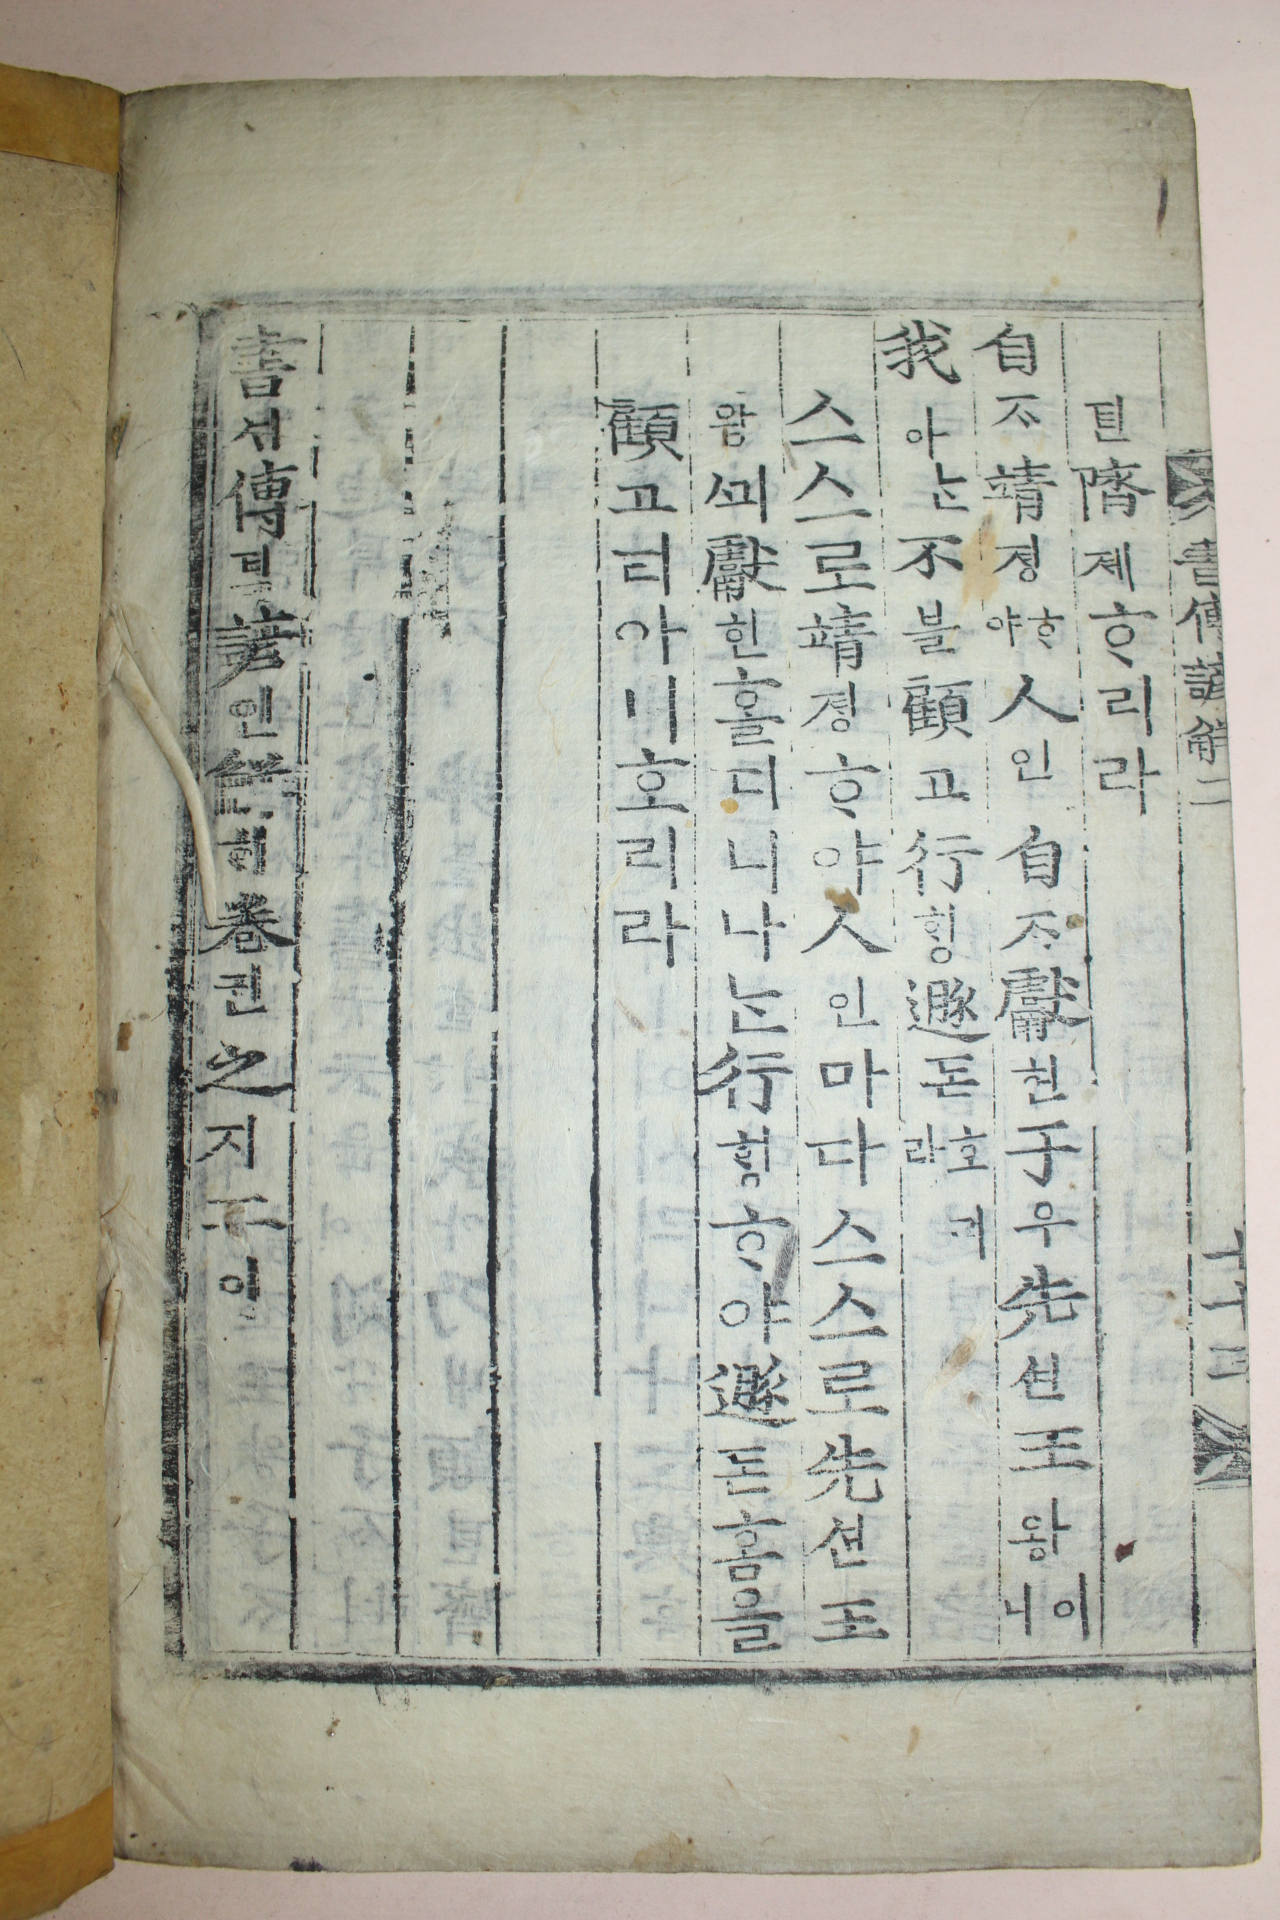 書傳諺觧二
뎐隮졔ᄒᆞ리라
自ᄌᆞ靖졍ᄒᆞ야人인自ᄌᆞ獻헌于우先션王왕이니
我아ᄂᆞᆫ不블顧고行ᄒᆡᆼ遯돈호라
스스로靖졍ᄒᆞ야人인마다스스로先션王
왕ᄭᅴ獻헌홀디니나ᄂᆞᆫ行ᄒᆡᆼᄒᆞ야遯돈홈을
顧고티아니호리라
書셔傳뎐諺언觧ᄒᆡ卷권之지二이